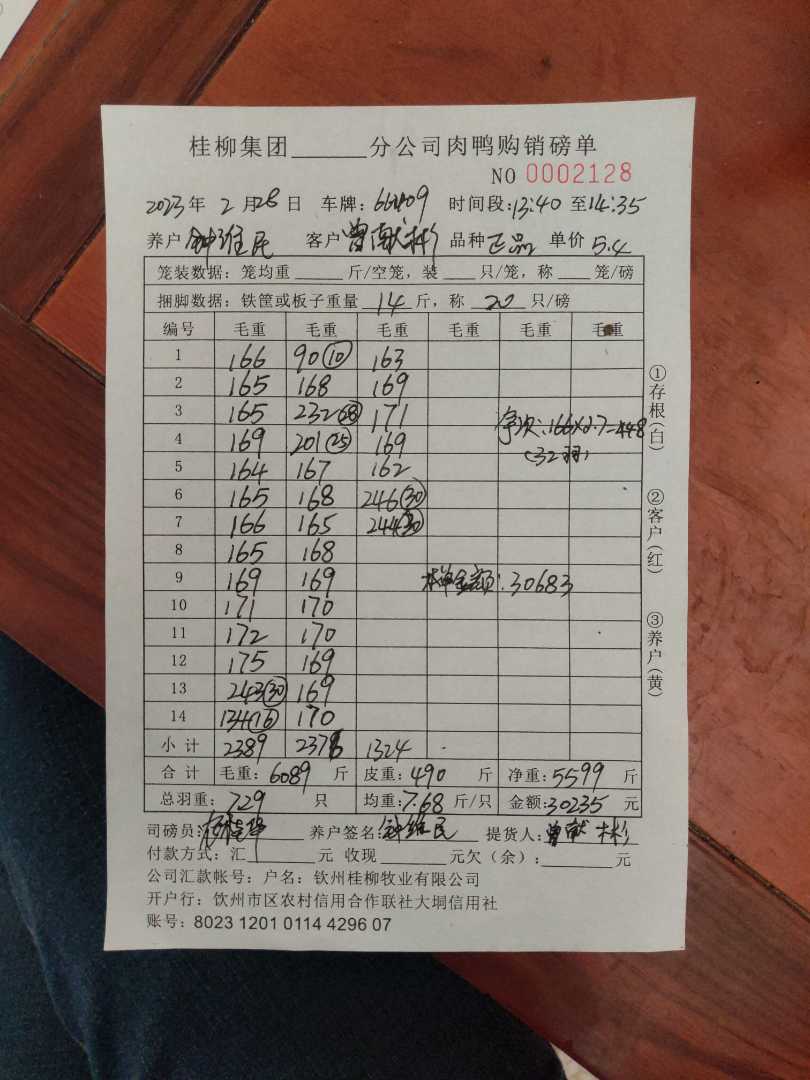 桂柳集团______分公司肉鸭购销磅单
NO 0002128
2023年 2月28日 车牌: 662409 时间段:13:40至14:35
养户 钟维民 客户 曾献彬 品种 正品 单价 5.4
笼装数据: 笼均重 ____ 斤/空笼, 装 ___ 只/笼, 称 ___ 笼/磅
捆脚数据: 铁筐或板子重量 14 斤, 称 20 只/磅
编号 毛重 毛重 毛重 毛重 毛重 毛重
1 166 90(10) 163
2 165 168 169
3 165 232(28) 171
4 169 201(25) 169
5 164 167 162
6 165 168 246(30)
7 166 165 244(30)
8 165 168
9 169 169
10 171 170
11 172 170
12 175 169
13 243(30) 169
14 134(16) 170
小计 2389 2376 1324
:166×2.7=448
(32羽)
本单金额:30683
合计 毛重: 6089 斤 皮重: 490 斤 净重: 5599 斤
总羽重: 729 只 均重: 7.68 斤/只 金额: 30235 元
司磅员: 养户签名: 钟维民 提货人: 曾献彬
付款方式: 汇______元 收现______元欠(余):______元
公司汇款帐号: 户名: 钦州桂柳牧业有限公司
开户行: 钦州市区农村信用合作联社大垌信用社
账号: 8023 1201 0114 4296 07
①存根(白)
②客户(红)
③养户(黄)